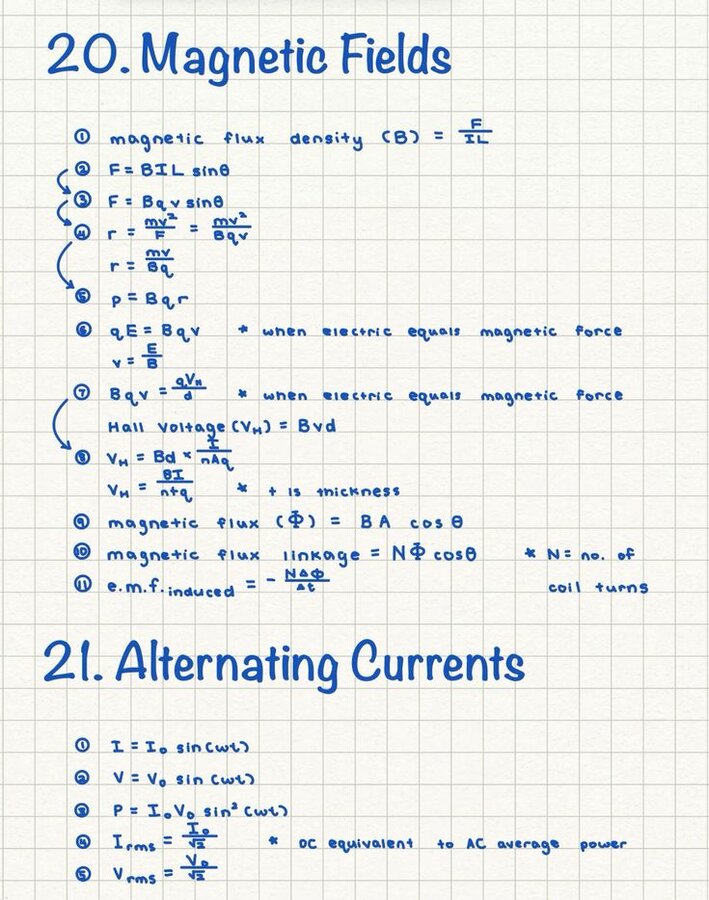 20. Magnetic Fields
① magnetic flux density (B) = F/IL
② F = BIL sinθ
③ F = Bqv sinθ
④ r = mv²/F = mv²/Bqv
r = mv/Bq
⑤ p = Bqr
⑥ qE = Bqv * when electric equals magnetic force
v = E/B
⑦ Bqv = qV_H/d * when electric equals magnetic force
Hall Voltage (V_H) = Bvd
⑧ V_H = Bd × I/nAq
V_H = BI/ntq * t is thickness
⑨ magnetic flux (Φ) = BA cosθ
⑩ magnetic flux linkage = NΦ cosθ * N = no. of
coil turns
⑪ e.m.f. induced = - NΔΦ/Δt
21. Alternating Currents
① I = I₀ sin(ωt)
② V = V₀ sin(ωt)
③ P = I₀V₀ sin²(ωt)
④ Irms = I₀/√2 * DC equivalent to AC average power
⑤ Vrms = V₀/√2